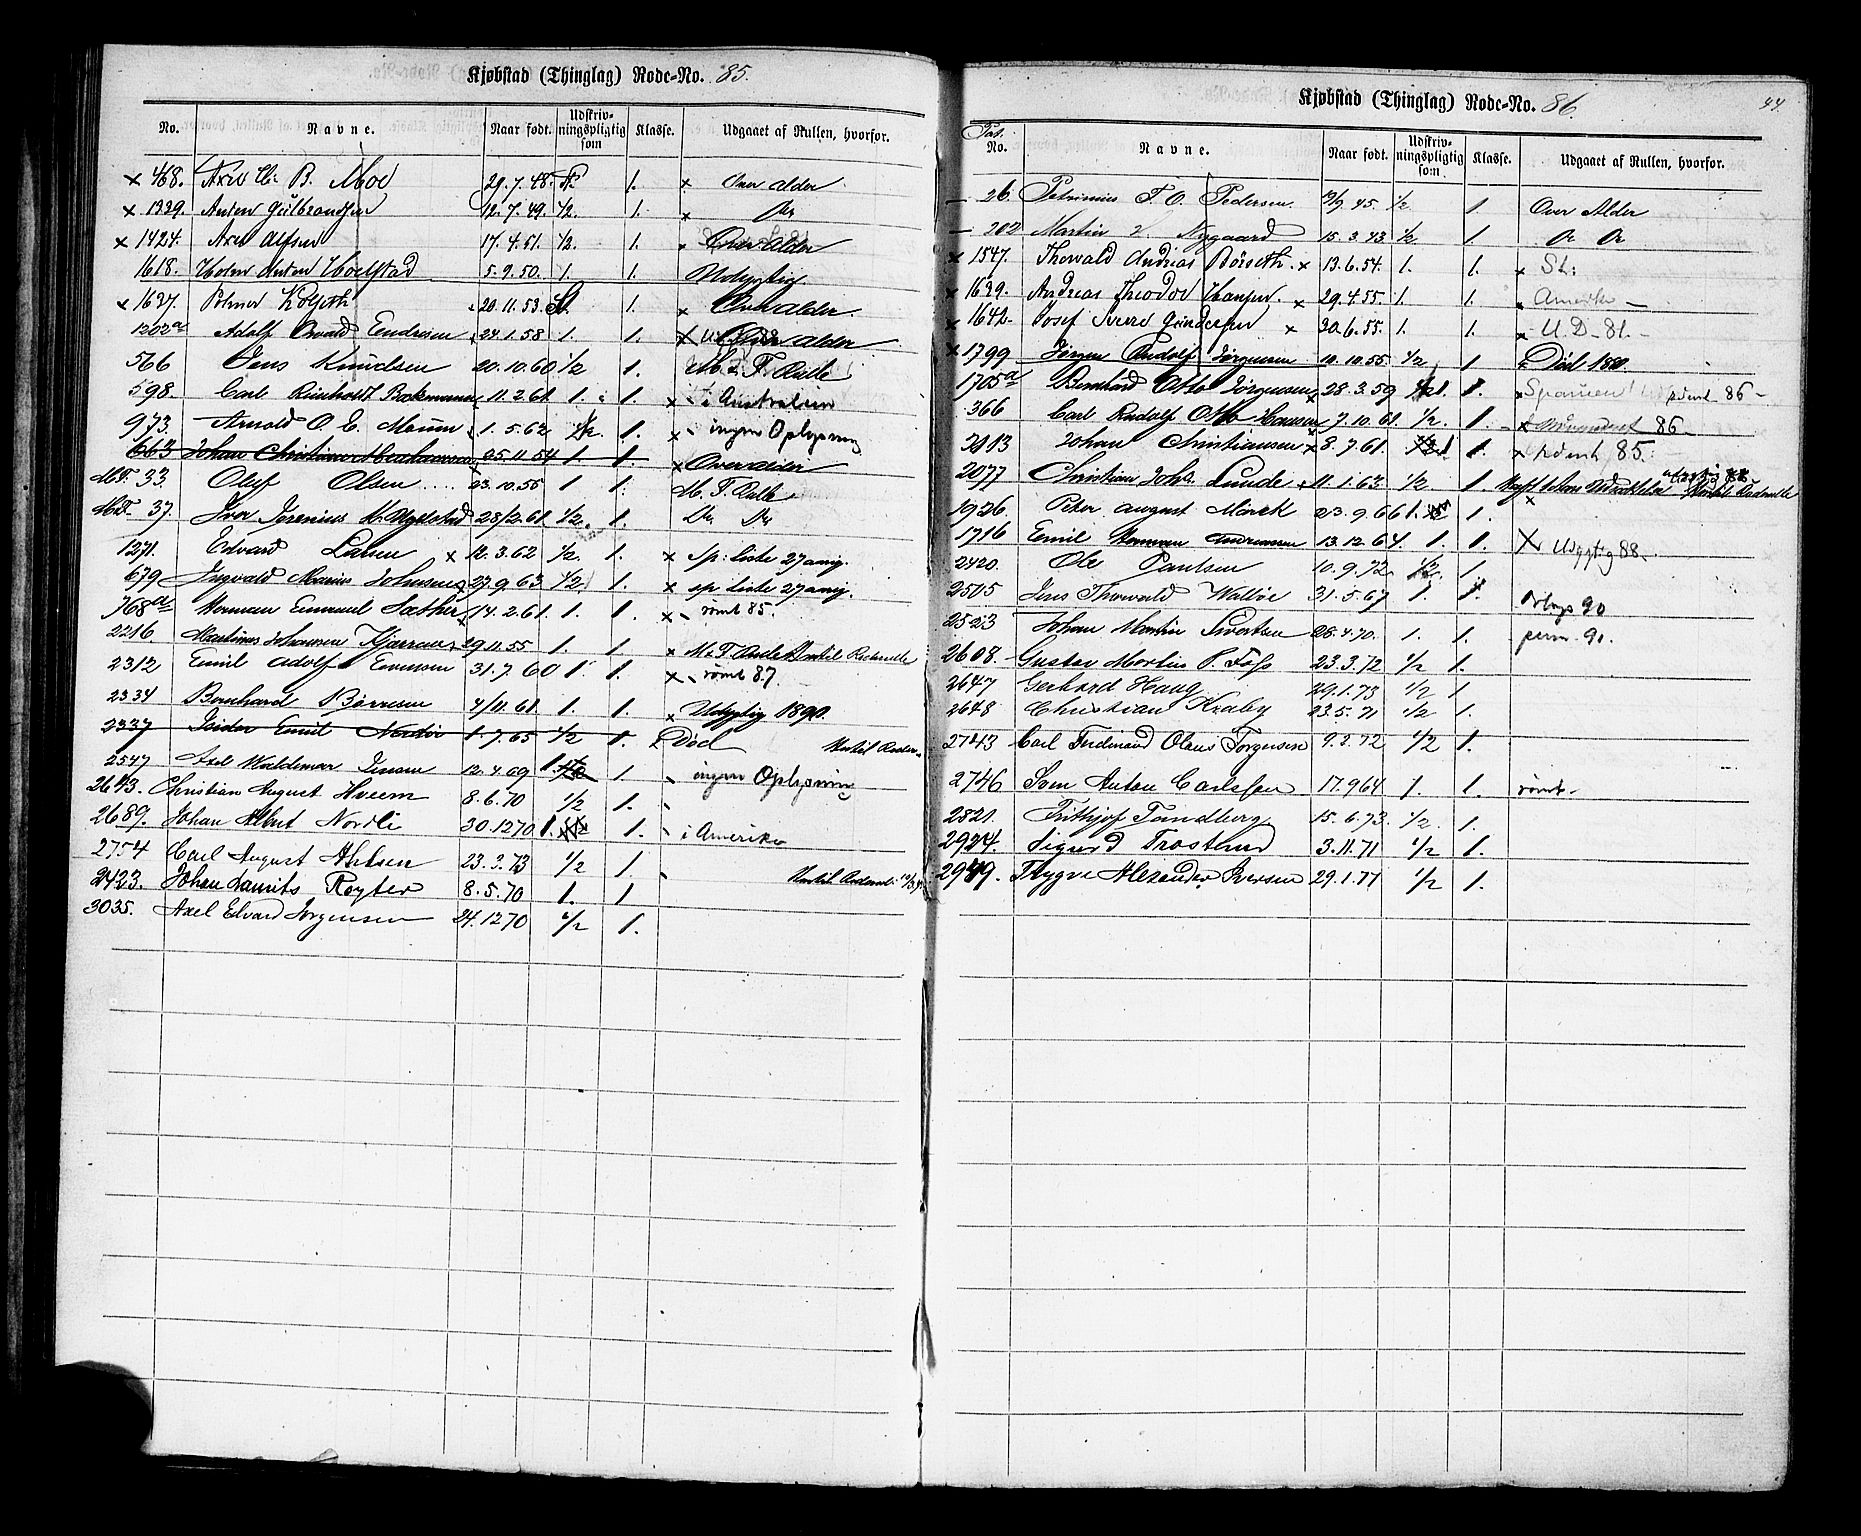 Kjøbstad (Thinglag) Rode-No. 85.
No. Navne. Naar født. Udskriv-ningspligtig som Klasse. Udgaaet af Rullen, hvorfor.
x 468. Axel B. Moe 29.7.48. 1. x Over alder
x 1339. Anton Gulbrandsen 12.7.49. 1/2. 1. x Do
x 1424. Axel Alfsen 17.4.51. 1/2. 1. Over alder
1618. Anton Hoelstad 5.9.50. 1. 1. Udygtig
x 1627. 20.11.53 1. x Over alder
1202a Adolf Endresen 24.1.58 1. 1. x Over alder
566 Jens Knudsen 20.10.60 1/2 1. M. T. Rulle
598. Carl Reinholt Bockmann 11.2.61. 1. 1. x i Australien
973. Arnold O. E. 1.5.62 1/2. 1. x ingen Oplysning
663 Johan Christian Abrahamsen 25.11.54 1. 1. x Over alder
M.T. 33. Oluf Olsen 23.10.56 1 1. M. T. Rulle
M.T. 37. Iver Jerenius 28/2.61 1/2. 1. Do Do
1271. Edvard Larsen x 12.3.62 1/2 1. x sp: liste 27 aarig.
679 Ingvald Marius Johnsen 27.9.63 1/2 1. x sp liste 27 aarig.
768a Herman Emanuel Sæther 14.2.61. 1. 1. x rømt 85.
2216. Martinus Johannsen 29.11.55 1. 1. x M. T. Rulle
2312 Emil Adolf Evensen 31.7.60 1. 1. x rømt 87.
2334 Bernhard Børresen 4/11.61. 1. 1. x Udygtig 1890.
2337 Isidor Emil 1.7.65 1/2 1. Død
2547 Axel Waldemar Jensen 12.4.69 1. 1 ingen Oplysning
2643. Christian August Hveem 8.6.70 1/2 1.
2689. Johan Albert Nordli 30.12 70 1. 1. i Amerika
2754 Carl August Ahlsen 23.2.73 1/2 1.
2423. Johan Laurits Røyter 8.5.70 1. 1
3035. Axel Edvard Jørgensen 24.12 70 1/2 1.
Kjøbstad (Thinglag) Rode-No. 86. 44.
Pat. No. Navne. Naar født. Udskriv-ningspligtig som Klasse. Udgaaet af Rullen, hvorfor.
— 26. Petrinius F. O. Pedersen. 45. 1/2 1. Over Alder
— 202 Martin Nygaard 15.3.43. 1/2 1. Do Do
x 1547. Thorvald Andreas Børseth. x 13.6.54. 1. 1. x St:
x 1639. Andreas Theodor Hansen. x 29.4.55. 1. 1. x Amerika —
x 1642. Josef Gundersen x 30.6.55. 1. 1. x U.D. 81.
x 1799 Jørgen Rudolf Jørgensen 10.10.55 1/2 1 Død 1880.
1705a Bernhard Otto Jørgensen 28.3.59 1. 1. x 86 —
366 Carl Rudolf Otto Hansen 7.10.61. 1/2. 1. x 86 —
2013 Johan Christiansen x 8.7.61. 1. x 85.
2077 Christian Joh. Lunde 11.1.63. 1/2 1.
1926. Peter August Mørck 23.9.66 1. 1.
1716 Emil Herman Andreassen 13.12.64. 1. 1. x Udygtig 88.
2420. Ole Paulsen 10.9.72. 1/2. 1.
2505 Jens Thorvald Walløe 31.5.67 1. 1.  90
2523 Johan Martin Sivertsen 26.4.70. 1. 1. perm. 90.
2608. Gustav Martin P. Foss 23.3.72 1/2 1.
2647 Gerhard Haug 29.1.73 1/2 1
2648 Christian Kraby 23.5.71 1/2 1.
2743 Carl Ferdinand Olaus Torgensen 9.2.72 1/2 1.
2746 Sven Anton Carlssen 17.9 64 1. 1. rømt —
2821. Frithjof Tandberg 15.6.73. 1/2. 1.
2924. Sigurd Trostrud 3.11.71 1/2 1.
2949. Trygve Alexander Iversen 29.1.71 1/2 1.